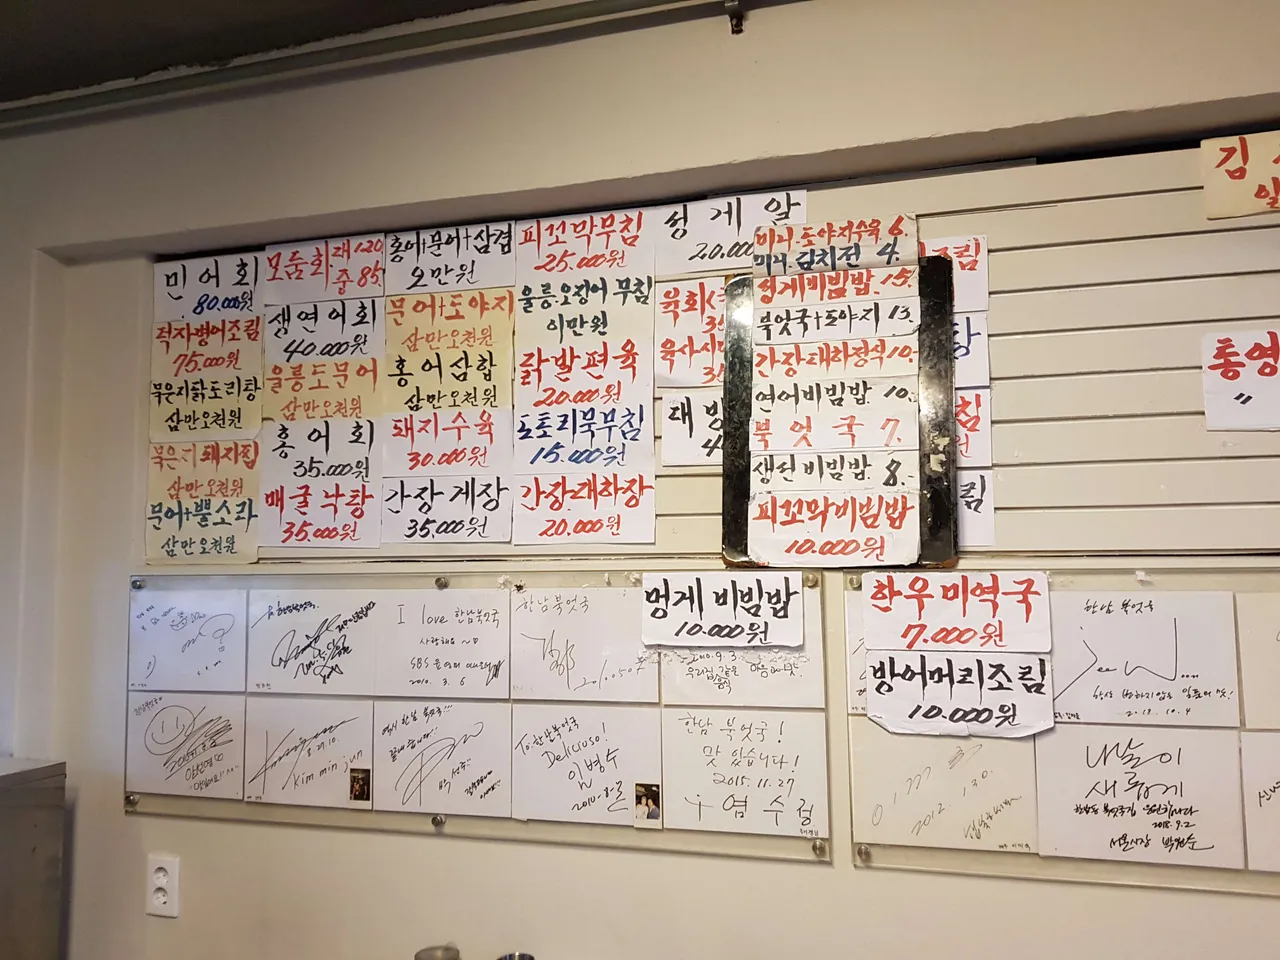 민어회
80.000원
적자병어조림
75.000원
묵은지닭도리탕
삼만오천원
묵은지돼지찜
삼만오천원
문어+뿔소라
삼만오천원
모둠회.대120
중85
생연어회
40.000원
울릉도문어
삼만오천원
홍어회
35.000원
매굴낙탕
35.000원
홍어+문어+삼겹
오만원
문어+도야지
삼만오천원
홍어삼합
삼만오천원
돼지수육
30.000원
간장게장
35.000원
피꼬막무침
25.000원
울릉오징어무침
이만원
닭발편육
20.000원
도토리묵무침
15.000원
간장대하장
20.000원
성게알
20.000
육회
육사시
대방
미니.도야지수육 6.
미니.김치전 4.
성게비빔밥.15.
북엇국+도야지 13.
간장대하정식10-
연어비빔밥 10.
북엇국 7.
생친비빔밥 8.
피꼬막비빔밥
10.000원
림
탕
침
원
림
김
일
통영
"
멍게비빔밥
10.000원
한우미역국
7.000원
방어머리조림
10.000원
I love 한남북엇국
사랑해요
2010. 3. 6
한남북엇국
2010.9.3
우리집같은
한남북엇국
2018.10.4
8.27.10.
Kim min jun
역시 한남 북엇국!!!
To.한남북엇국
Delicioso!
임병수
한남 북엇국!
맛있습니다!
2015.11.27
염수정
2012.1.30.
나날이
새롭게
2018.9.2
서울시장 박원순